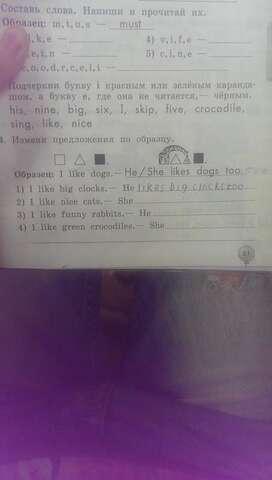 Составь слова. Напиши и прочитай их.
Образец: m,t,u,s — must
l,k,e —
4) v,i,f,e —
e,t,n —
5) c,i,n,e —
c,o,o,d,r,c,e,l,i —
Подчеркни букву i красным или зелёным каранда-
шом, а букву e, где она не читается,— чёрным.
his, nine, big, six, I, skip, five, crocodile,
sing, like, nice
Измени предложения по образцу.
Образец: I like dogs.— He/She likes dogs too.
1) I like big clocks.— He likes big clocks too
2) I like nice cats.— She
3) I like funny rabbits.— He
4) I like green crocodiles.— She